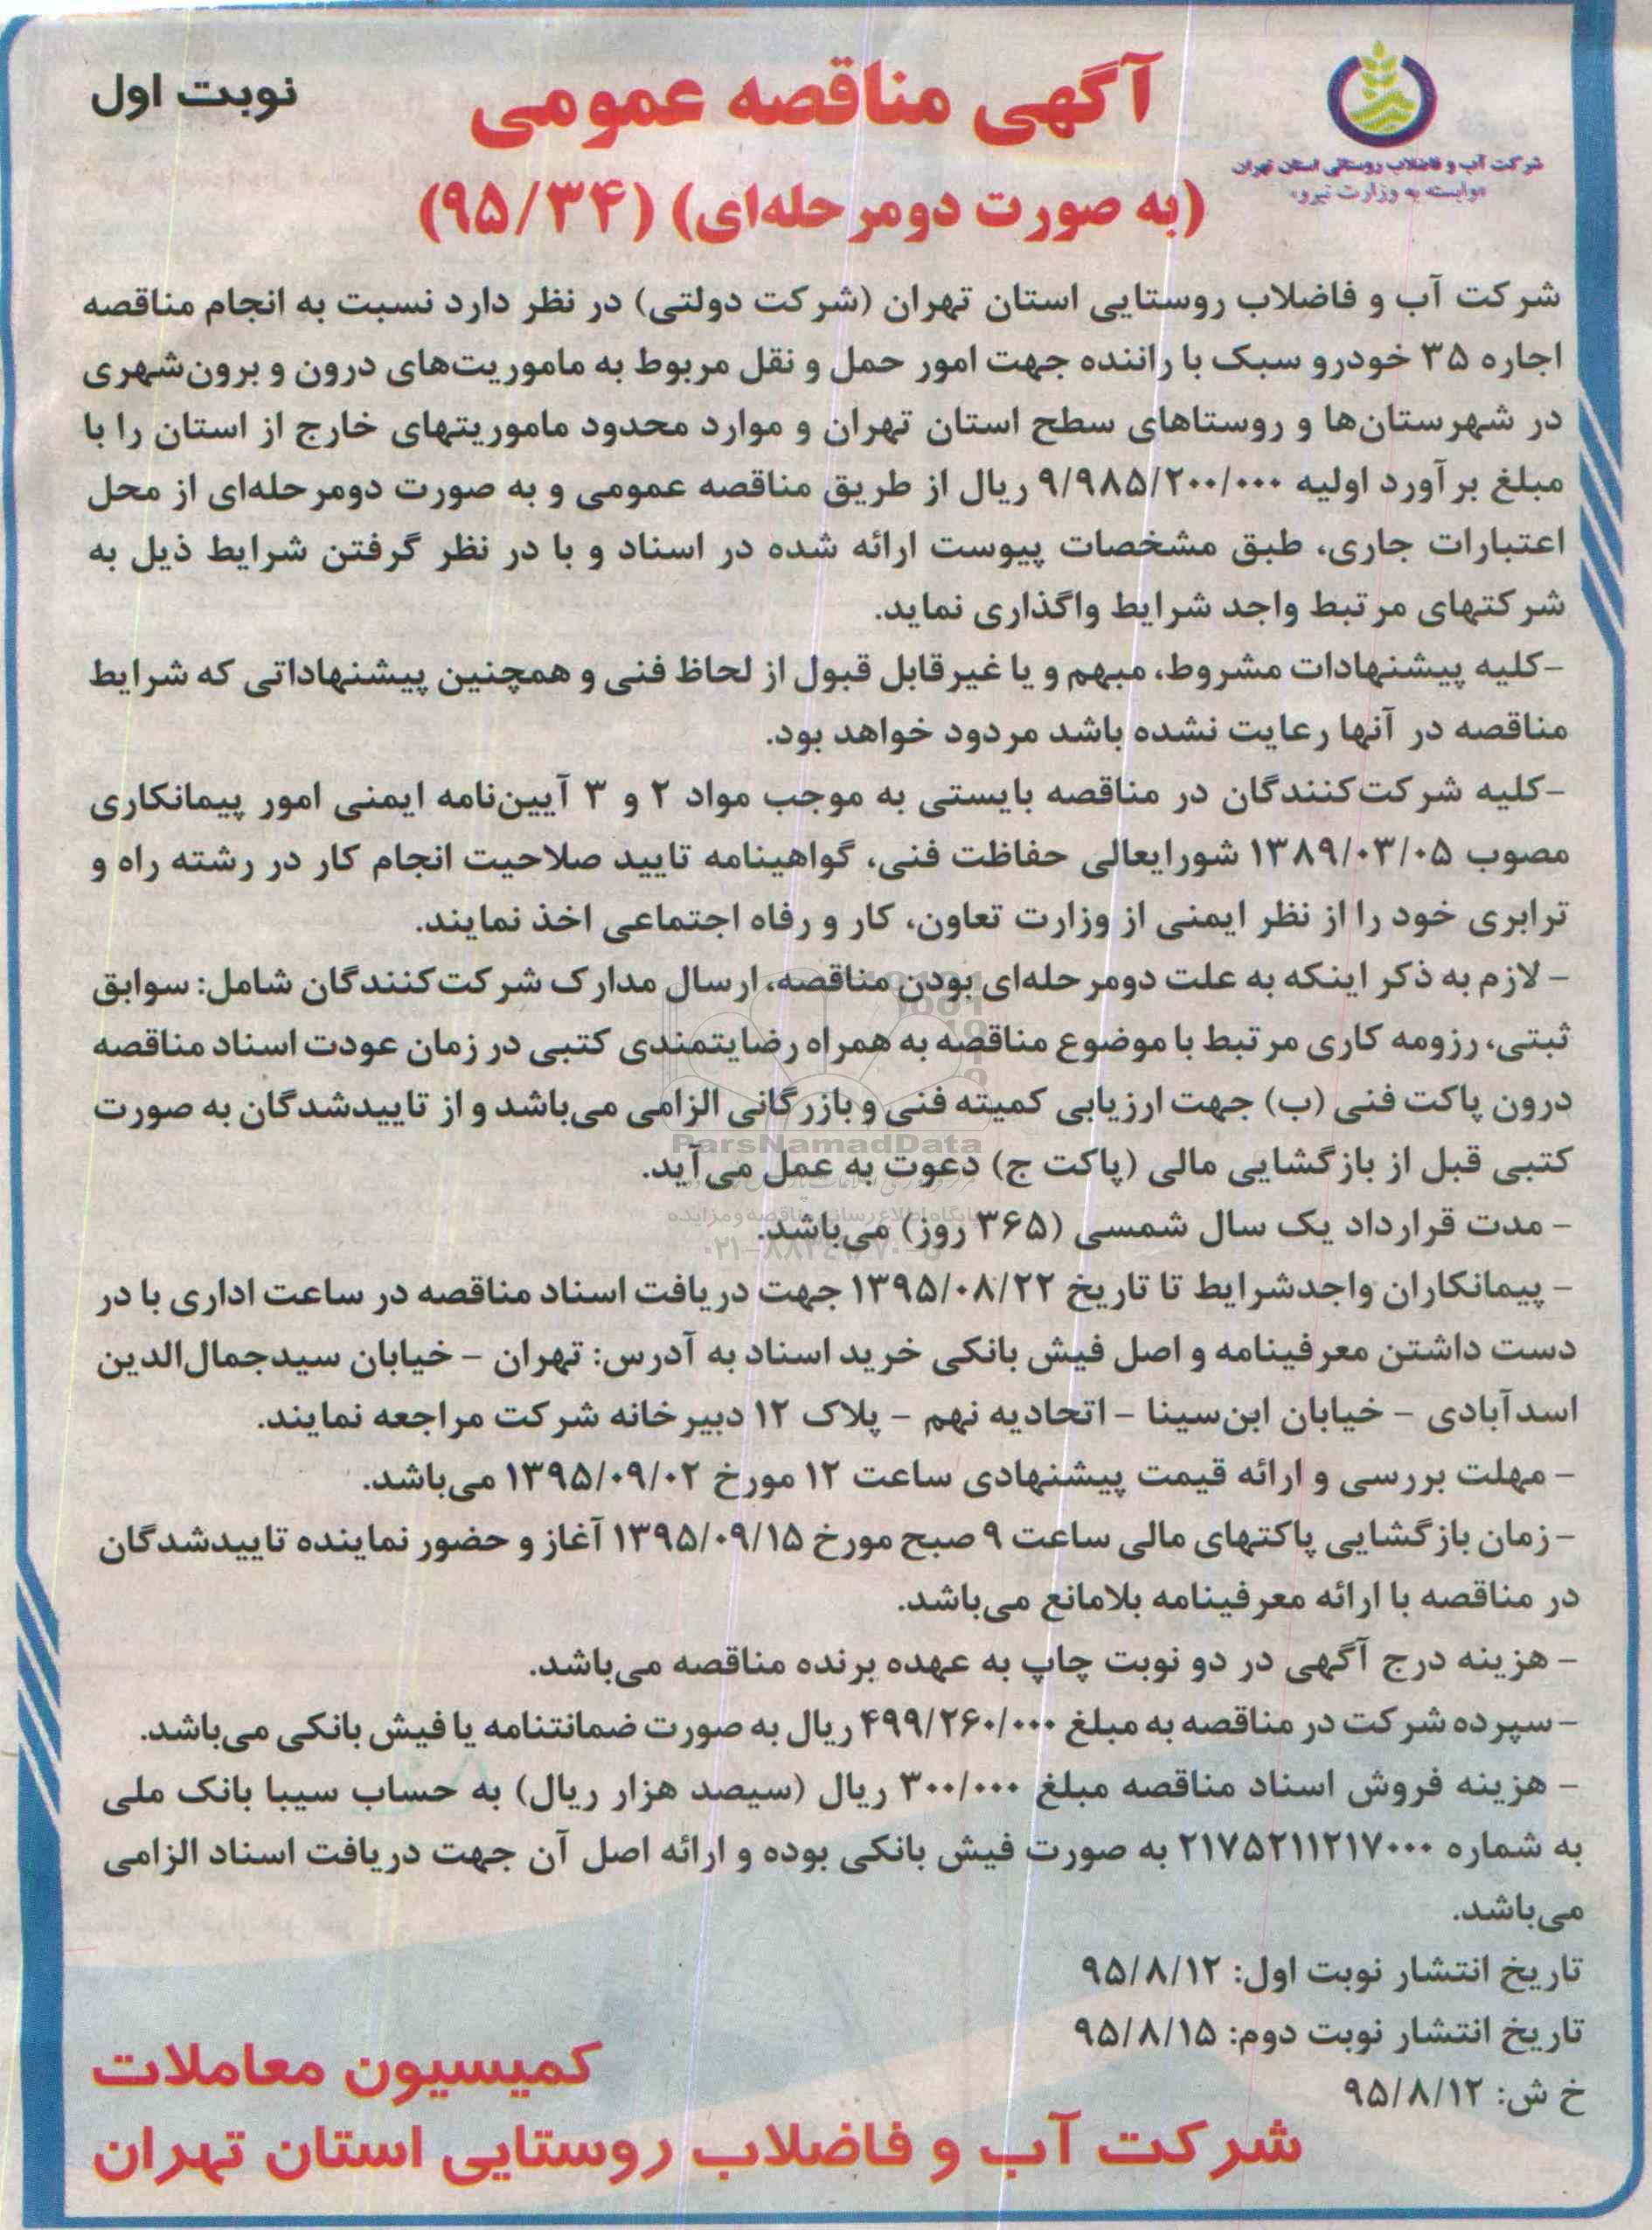 نوبت اول
آگهی مناقصه عمومی
(به صورت دومرحله‌ای) (۹۵/۳۴)
شرکت آب و فاضلاب روستائی استان تهران
«وابسته به وزارت نیرو»
شرکت آب و فاضلاب روستایی استان تهران (شرکت دولتی) در نظر دارد نسبت به انجام مناقصه
اجاره ۳۵ خودرو سبک با راننده جهت امور حمل و نقل مربوط به ماموریت‌های درون و برون‌شهری
در شهرستان‌ها و روستاهای سطح استان تهران و موارد محدود ماموریتهای خارج از استان را با
مبلغ برآورد اولیه ۹/۹۸۵/۲۰۰/۰۰۰ ریال از طریق مناقصه عمومی و به صورت دومرحله‌ای از محل
اعتبارات جاری، طبق مشخصات پیوست ارائه شده در اسناد و با در نظر گرفتن شرایط ذیل به
شرکتهای مرتبط واجد شرایط واگذاری نماید.
-کلیه پیشنهادات مشروط، مبهم و یا غیرقابل قبول از لحاظ فنی و همچنین پیشنهاداتی که شرایط
مناقصه در آنها رعایت نشده باشد مردود خواهد بود.
-کلیه شرکت‌کنندگان در مناقصه بایستی به موجب مواد ۲ و ۳ آیین‌نامه ایمنی امور پیمانکاری
مصوب ۱۳۸۹/۰۳/۰۵ شورایعالی حفاظت فنی، گواهینامه تایید صلاحیت انجام کار در رشته راه و
ترابری خود را از نظر ایمنی از وزارت تعاون، کار و رفاه اجتماعی اخذ نمایند.
- لازم به ذکر اینکه به علت دومرحله‌ای بودن مناقصه، ارسال مدارک شرکت‌کنندگان شامل: سوابق
ثبتی، رزومه کاری مرتبط با موضوع مناقصه به همراه رضایتمندی کتبی در زمان عودت اسناد مناقصه
درون پاکت فنی (ب) جهت ارزیابی کمیته فنی و بازرگانی الزامی می‌باشد و از تاییدشدگان به صورت
ParsNamadData
کتبی قبل از بازگشایی مالی (پاکت ج) دعوت به عمل می‌آید.
پایگاه اطلاع رسانی مناقصه و مزایده
- مدت قرارداد یک سال شمسی (۳۶۵ روز) می‌باشد.
- پیمانکاران واجدشرایط تا تاریخ ۱۳۹۵/۰۸/۲۲ جهت دریافت اسناد مناقصه در ساعت اداری با در
دست داشتن معرفینامه و اصل فیش بانکی خرید اسناد به آدرس: تهران - خیابان سیدجمال‌الدین
اسدآبادی - خیابان ابن‌سینا - اتحادیه نهم - پلاک ۱۲ دبیرخانه شرکت مراجعه نمایند.
- مهلت بررسی و ارائه قیمت پیشنهادی ساعت ۱۲ مورخ ۱۳۹۵/۰۹/۰۲ می‌باشد.
- زمان بازگشایی پاکتهای مالی ساعت ۹ صبح مورخ ۱۳۹۵/۰۹/۱۵ آغاز و حضور نماینده تاییدشدگان
در مناقصه با ارائه معرفینامه بلامانع می‌باشد.
- هزینه درج آگهی در دو نوبت چاپ به عهده برنده مناقصه می‌باشد.
- سپرده شرکت در مناقصه به مبلغ ۴۹۹/۲۶۰/۰۰۰ ریال به صورت ضمانتنامه یا فیش بانکی می‌باشد.
- هزینه فروش اسناد مناقصه مبلغ ۳۰۰/۰۰۰ ریال (سیصد هزار ریال) به حساب سیبا بانک ملی
به شماره ۲۱۷۵۲۱۱۲۱۷۰۰۰ به صورت فیش بانکی بوده و ارائه اصل آن جهت دریافت اسناد الزامی
می‌باشد.
تاریخ انتشار نوبت اول: ۹۵/۸/۱۲
تاریخ انتشار نوبت دوم: ۹۵/۸/۱۵
خ ش: ۹۵/۸/۱۲
کمیسیون معاملات
شرکت آب و فاضلاب روستایی استان تهران